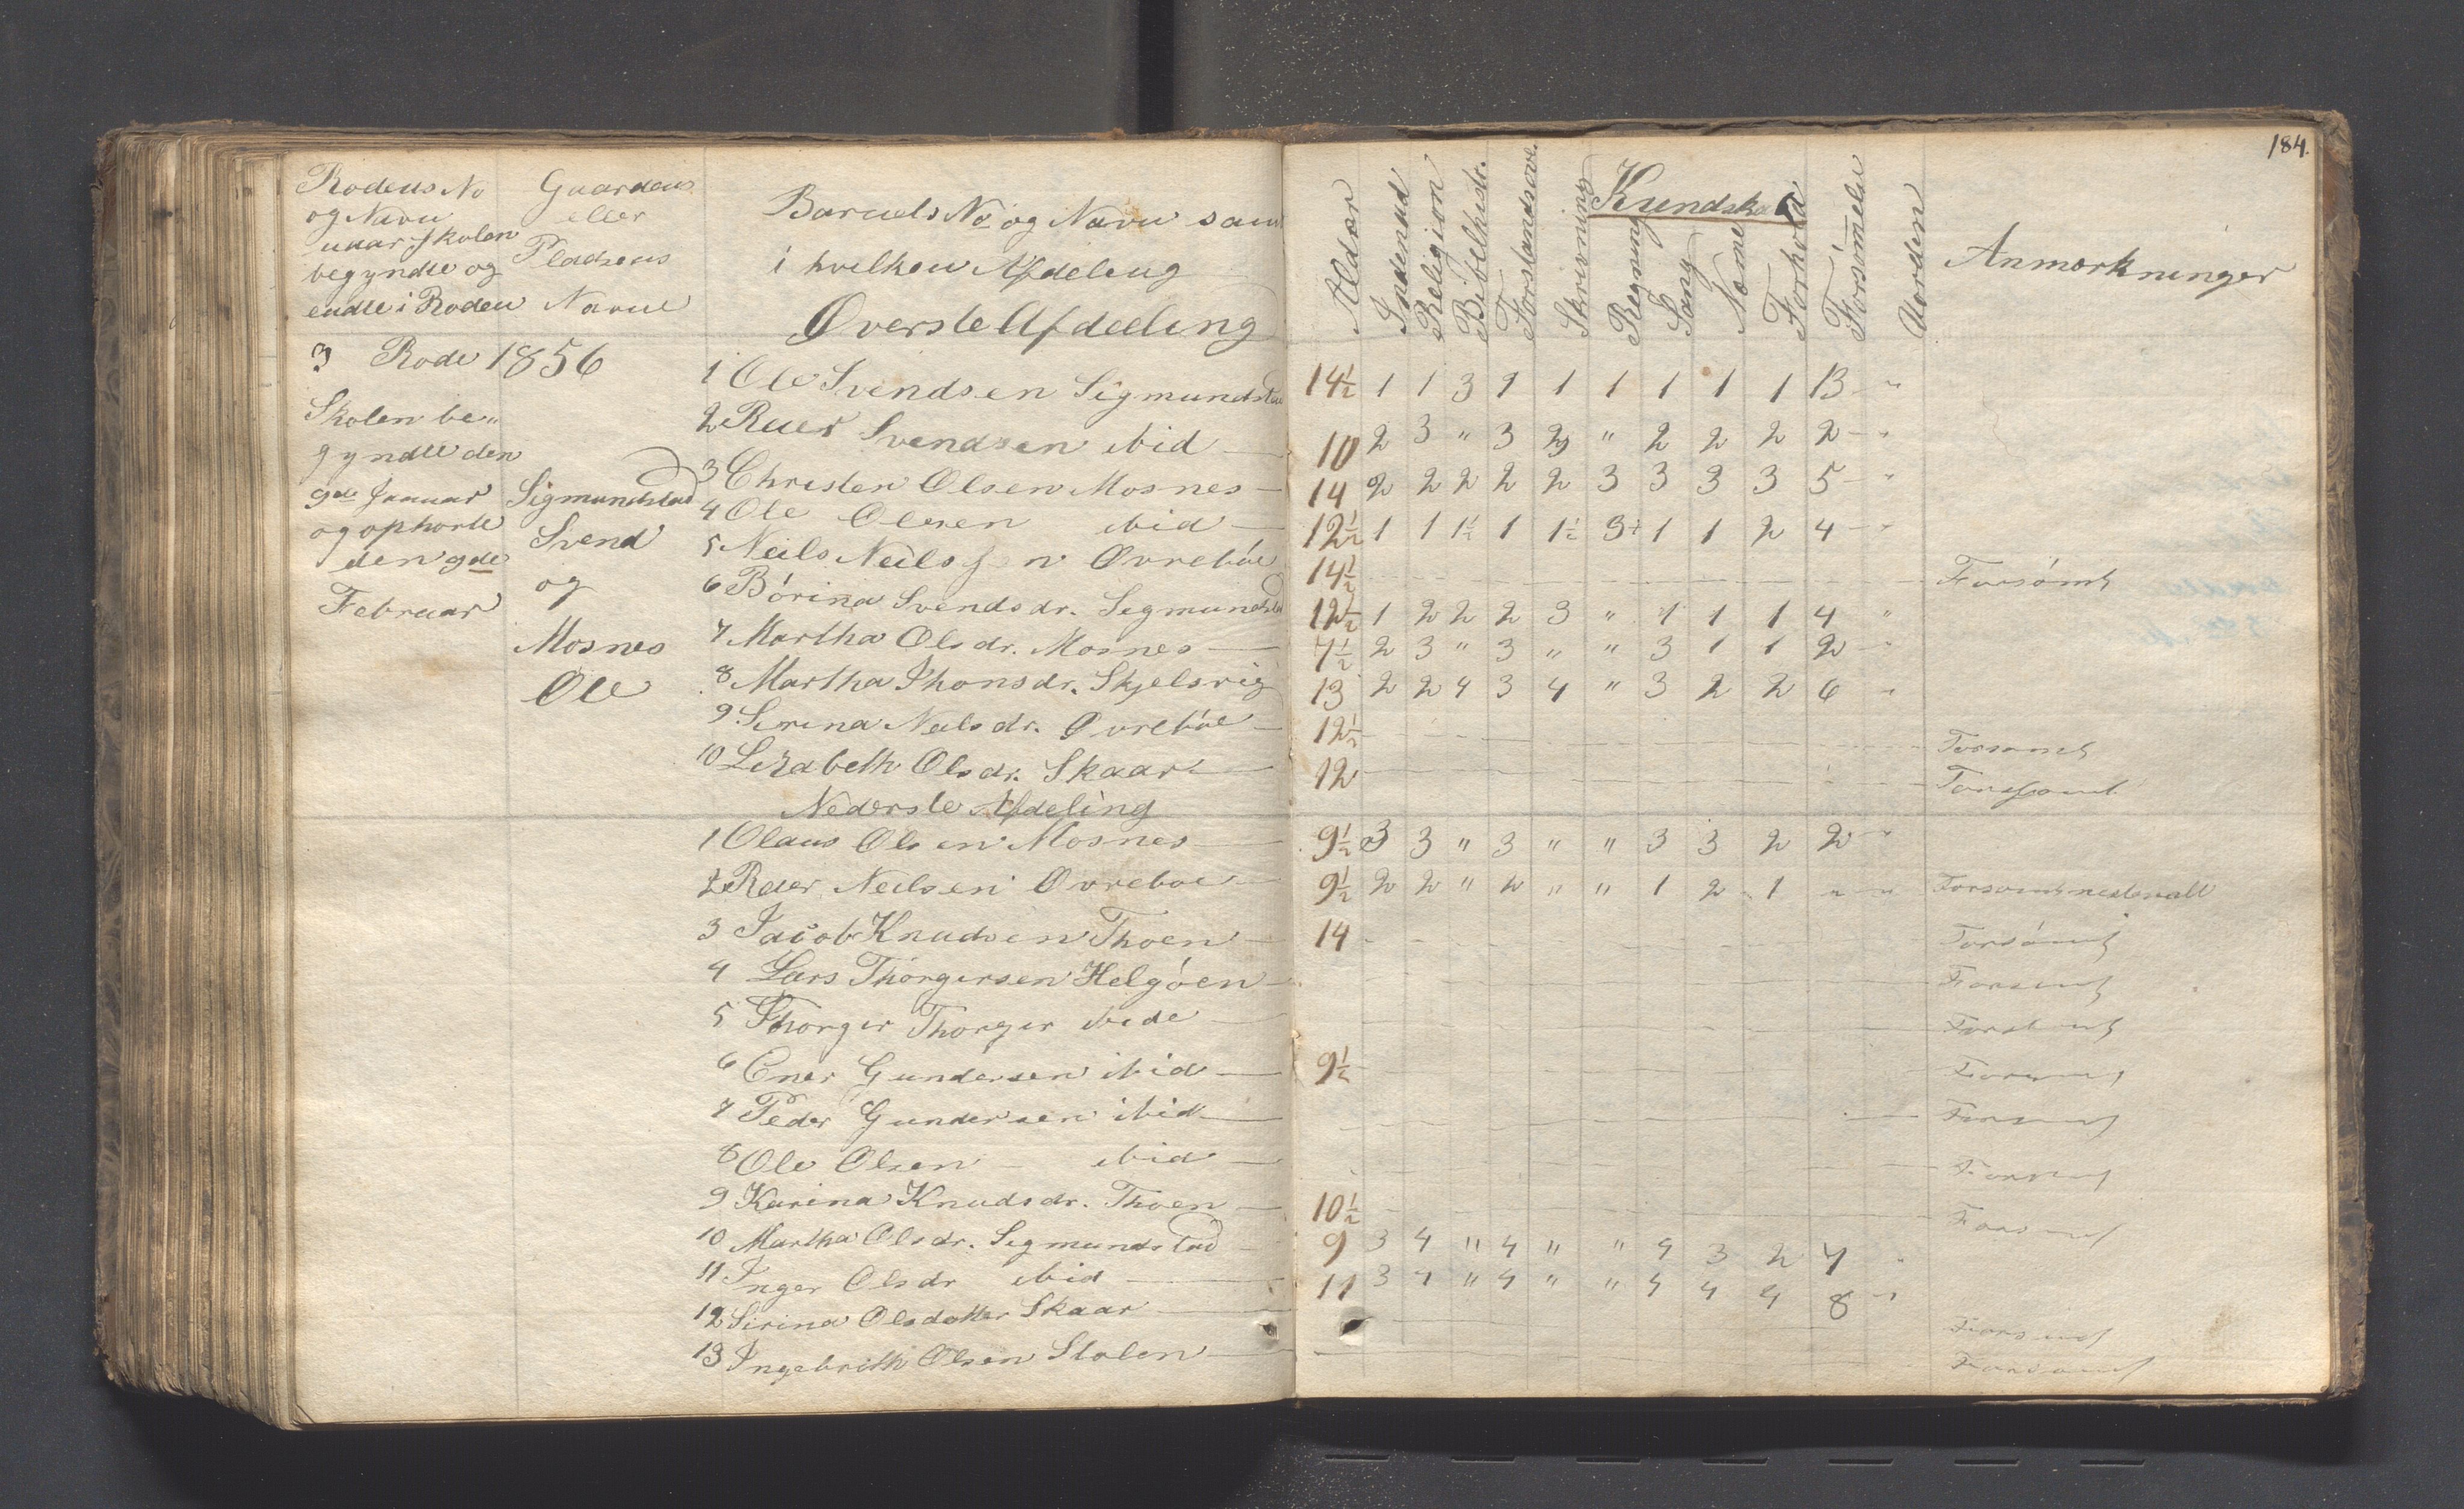 184.
Rodens No
og Navn
naar Skolen
begyndte og
endte i Roden
Gaardens
eller
Pladsens
Navne
Barnets No og Navn samt
i hvilken Afdeling
Øverste Afdeeling
Alder
Indenad
Religion
Bibelhistr.
Forstandsøve.
Skrivning
Regning
Sang
Næmme
Forhold
Forsømelse
Uorden
Kundskab
Anmærkninger
3 Rode 1856
Skolen be„
gyndte den
9de Januar
og ophørte
den 9de
Februar
Sigmundstad
Svend
og
Mosnes
Ole
1 Ole Svendsen Sigmundstad 14½ 1 1 3 1 1 1 1 1 1 13 "
2 Reier Svendsen ibid 10 2 3 " 3 2 " 2 2 2 2 "
3 Christen Olsen Mosnes 14 2 2 2 2 2 3 3 3 3 5 "
4 Ole Olesen ibid 12½ 1 1 1½ 1 1½ 3+ 1 1 2 4 "
5 Neils Neilssen Øvrebøe 14½ Forsømt
6 Børina Svendsdr. Sigmundstad 12½ 1 2 2 2 3 " 1 1 1 4 "
7 Martha Olsdr. Mosnes 7½ 2 3 " 3 " " 3 1 1 2 "
8 Martha Thonsdr. Skjelsvig 13 2 2 4 3 4 " 3 2 2 6 "
9 Sirina Neilsdr. Øvrebøe 12½ Forsømt
10 Lizabeth Olsdr. Skaar 12 Forssømt
Nederste Afdeling
1 Olaus Olsen Mosnes 9½ 3 3 " 3 " " 3 3 2 2 "
2 Reier Neilsen Øvrebøe 9½ 2 2 " 2 " " 1 2 1 " " Forsømt
3 Jacob Knudsen Thoen 14 Forsømt
4 Lars Thorgersen Helgøen Forsømt
5 Thorger Thorger ibide Forsømt
6 Ener Gundersen ibid 9½ Forsømt
7 Peder Gundersen ibid Forsømt
8 Ole Olsen ibid Forsømt
9 Karina Knudsdr. Thoen 10½ Forsømt
10 Martha Olsdr. Sigmundstad 9 3 4 " 4 " " 4 3 2 7 "
11 Inger Olsdr ibid 11 3 4 " 4 " " 4 4 4 8 "
12 Sirina Olsdatter Skaar Forsømt
13 Ingebrith Olsen Stolen Forsømt